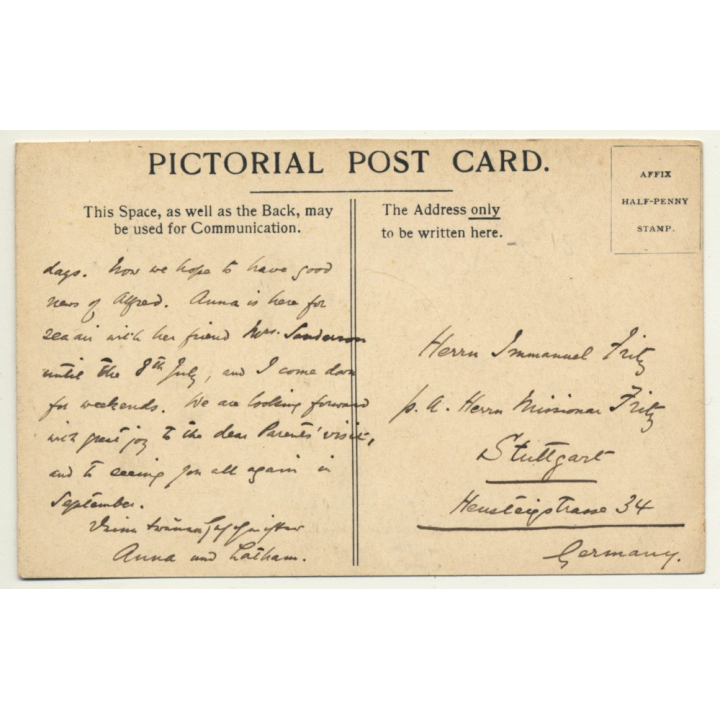 PICTORIAL POST CARD.
This Space, as well as the Back, may
be used for Communication.
The Address only
to be written here.
AFFIX
HALF-PENNY
STAMP.
days. Now we hope to have good
news of Alfred. Anna is here for
sea air with her friend Mrs. Sanderson
until the 8th July, and I come down
for weekends. We are looking forward
with great joy to the dear Parents' visit,
and to seeing you all again in
September.
Geschwister
Anna und Latham.
Herrn Immanuel Fritz
p. A. Herrn Missionar Fritz
Stuttgart
Heusteigstrasse 34
Germany.